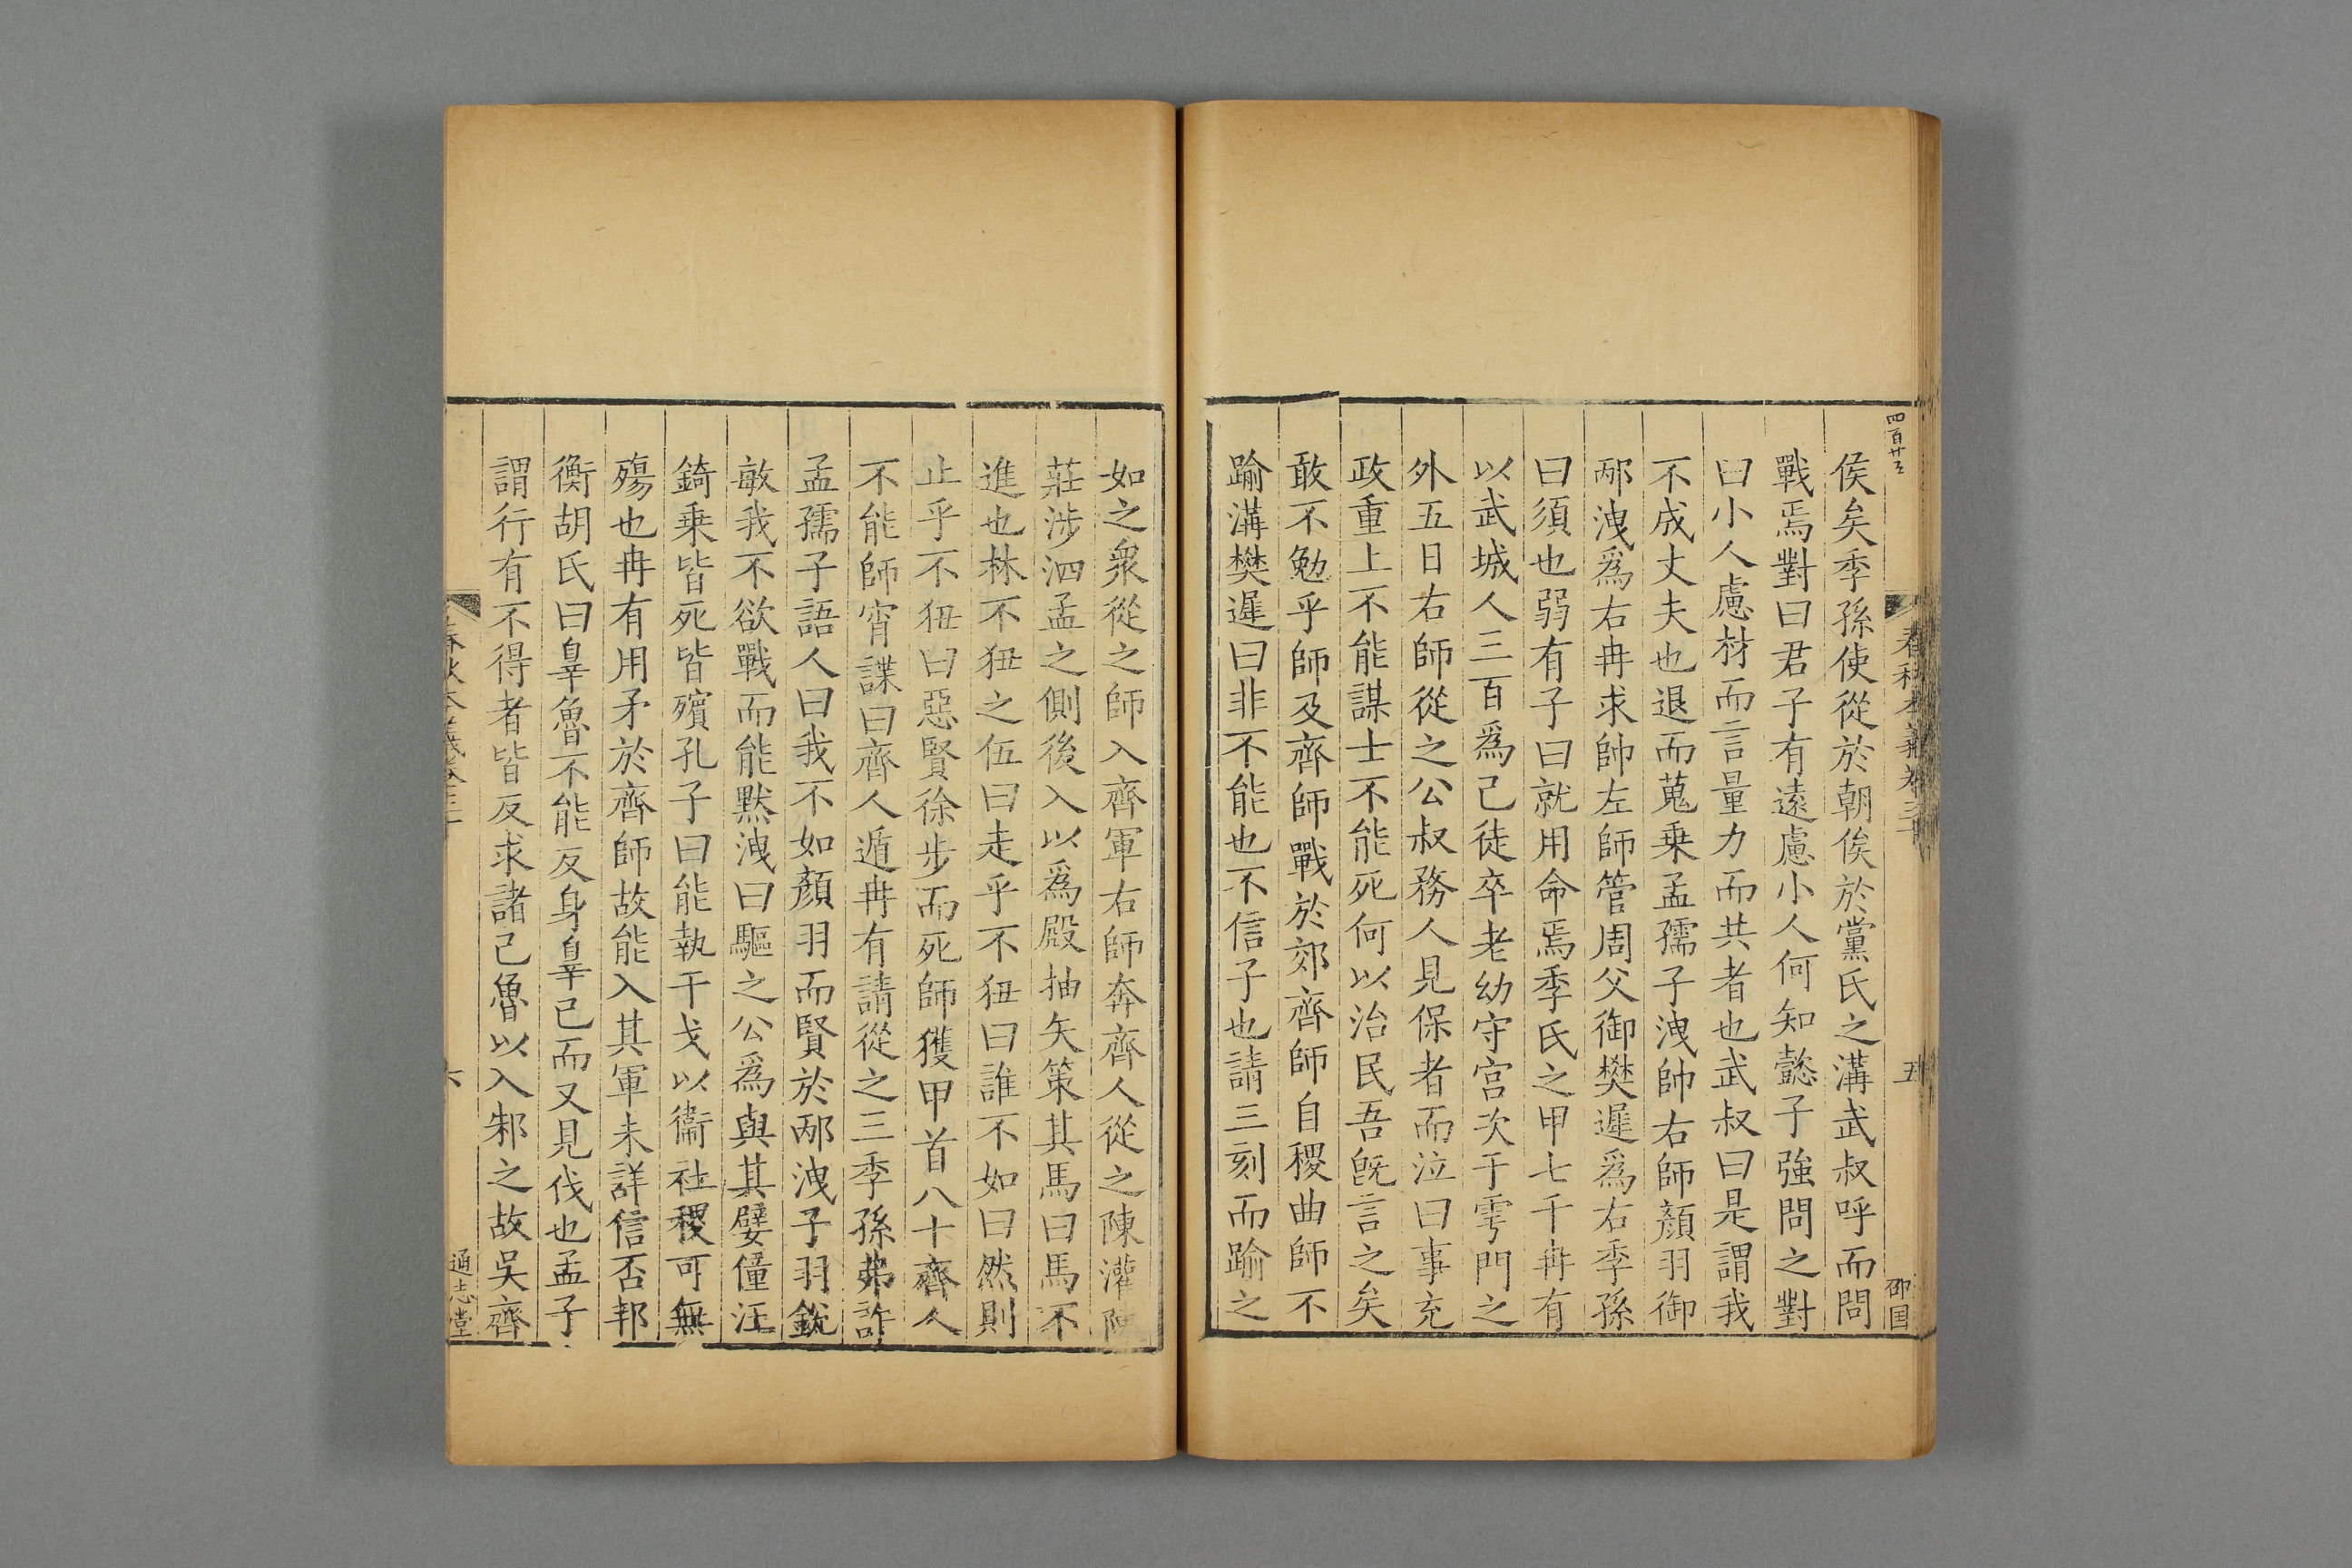 四百廿五
春秋本義卷三十
五
邵国
侯矣季孫使從於朝俟於黨氏之溝武叔呼而問
戰焉對曰君子有遠慮小人何知懿子強問之對
曰小人慮材而言量力而共者也武叔曰是謂我
不成丈夫也退而蒐乗孟孺子洩帥右師顔羽御
邴洩爲右冉求帥左師管周父御樊遲爲右季孫
曰須也弱有子曰就用命焉季氏之甲七千冉有
以武城人三百爲己徒卒老幼守宫次于雩門之
外五日右師從之公叔務人見保者而泣曰事充
政重上不能謀士不能死何以治民吾旣言之矣
敢不勉乎師及齊師戰於郊齊師自稷曲師不
踰溝樊遲曰非不能也不信子也請三刻而踰之
如之衆從之師入齊軍右師奔齊人從之陳瓘陳
莊涉泗孟之側後入以爲殿抽矢策其馬曰馬不
進也林不狃之伍曰走乎不狃曰誰不如曰然則
止乎不狃曰惡賢徐步而死師獲甲首八十齊人
不能師宵諜曰齊人遁冉有請從之三季孫弗許
孟孺子語人曰我不如顔羽而賢於邴洩子羽銳
敏我不欲戰而能黙洩曰驅之公爲與其嬖僮汪
錡乗皆死皆殯孔子曰能執干戈以衞社稷可無
殤也冉有用矛於齊師故能入其軍未詳信否邦
衡胡氏曰辠魯不能反身辠己而又見伐也孟子
謂行有不得者皆反求諸己魯以入邾之故吳齊
春秋本義卷三十
六
通志堂